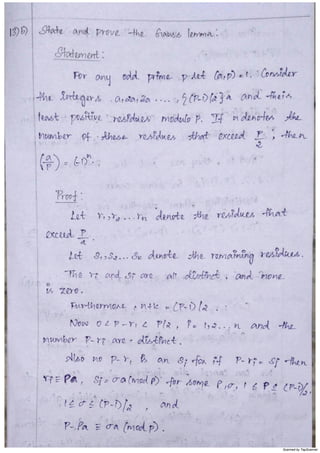 13)b) State and prove the Gauss lemma:
Statement:
For any odd prime p. let (a,p) = 1. Consider
the integers a, 2a, 3a ....., {(P-1)/2} a and their
least positive residues modulo P. If n denotes the
number of these residues that exceed P/2, then
(a/P) = (-1)^n.
Proof:
Let r1, r2, ... rn denote the residues that
exceed P/2.
Let s1, s2, ... sk denote the remaining residues.
The ri and si are all distinct, and none
is zero.
Furthermore, n+k = (P-1)/2.
Now 0 < P-ri < P/2, i = 1,2...,n and the
number P-ri are distinct.
Also no P-ri is an sj for if P-ri = sj then
ri ≡ Pa, sj = σa (mod P) for some P,σ, 1 ≤ P ≤ (P-1)/2,
1 ≤ σ ≤ (P-1)/2, and
P-Pa ≡ σa (mod p).
Scanned by TapScanner